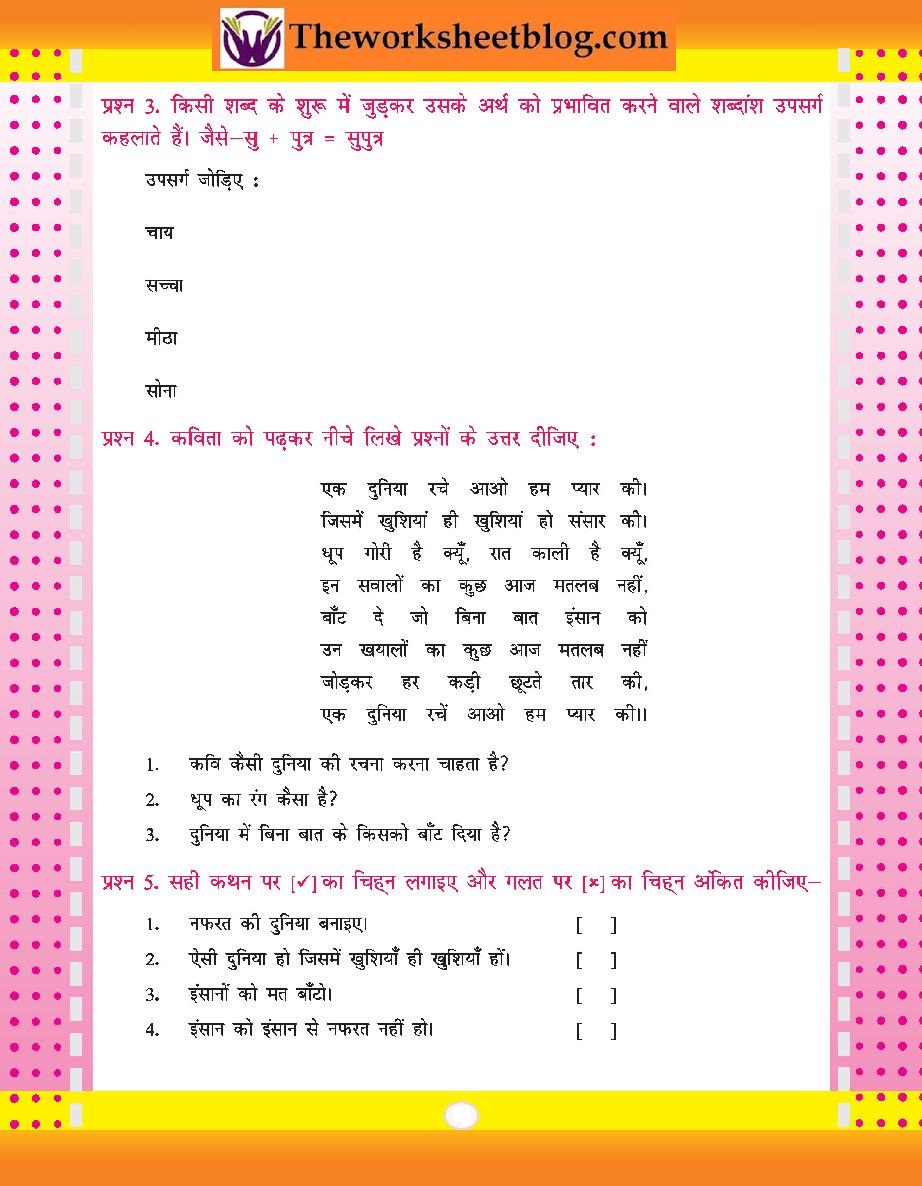 Theworksheetblog.com
प्रश्न 3. किसी शब्द के शुरू में जुड़कर उसके अर्थ को प्रभावित करने वाले शब्दांश उपसर्ग
कहलाते हैं। जैसे–सु + पुत्र = सुपुत्र
उपसर्ग जोड़िए :
चाय
सच्चा
मीठा
सोना
प्रश्न 4. कविता को पढ़कर नीचे लिखे प्रश्नों के उत्तर दीजिए :
एक दुनिया रचे आओ हम प्यार की।
जिसमें खुशियां ही खुशियां हो संसार की।
धूप गोरी है क्यूँ, रात काली है क्यूँ,
इन सवालों का कुछ आज मतलब नहीं,
बाँट दे जो बिना बात इंसान को
उन खयालों का कुछ आज मतलब नहीं
जोड़कर हर कड़ी छूटते तार की,
एक दुनिया रचें आओ हम प्यार की।।
1. कवि कैसी दुनिया की रचना करना चाहता है?
2. धूप का रंग कैसा है?
3. दुनिया में बिना बात के किसको बाँट दिया है?
प्रश्न 5. सही कथन पर [✓] का चिह्न लगाइए और गलत पर [✗] का चिह्न अंकित कीजिए–
1. नफरत की दुनिया बनाइए। [ ]
2. ऐसी दुनिया हो जिसमें खुशियाँ ही खुशियाँ हों। [ ]
3. इंसानों को मत बाँटो। [ ]
4. इंसान को इंसान से नफरत नहीं हो। [ ]